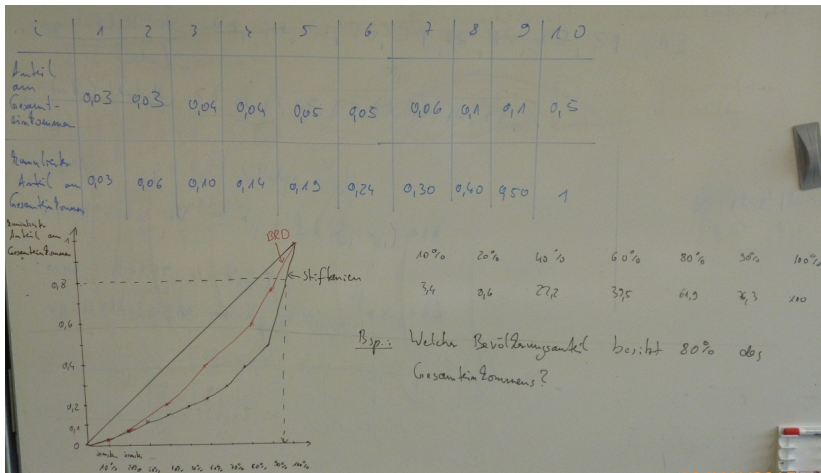 i 1 2 3 4 5 6 7 8 9 10
Anteil
am
Gesamt-
einkommen
0,03 0,03 0,04 0,04 0,05 0,05 0,06 0,1 0,1 0,5
kumulierter
Anteil am
Gesamteinkommen
0,03 0,06 0,10 0,14 0,19 0,24 0,30 0,40 0,50 1
kumulierter
Anteil am
Gesamteinkommen
BRD
1
Stiftenien
0,8
0,6
0,4
0,2
0,1
0
10% 20% 40% 60% 80% 90% 100%
3,4 22,2 39,5 61,9 76,3 100
Bsp.: Welcher Bevölkerungsanteil besitzt 80% des
Gesamteinkommens?
10% 20% 60% 70% 80% 90% 100%